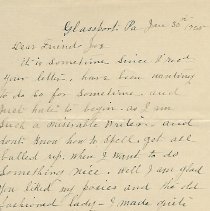 Glassport, Pa. Jan 30th
Dear Friend Joe
it is Sometime Since I Rec'd
your letter, have been wanting
to do so for Sometime, and
just hate to begin. as I am
Such a miserable Writer. and
don't Know how to Spell. get all
balled up. when I want to do
Something nice. Well I am glad
you liked my posies and the old
fashioned lady - I made quite